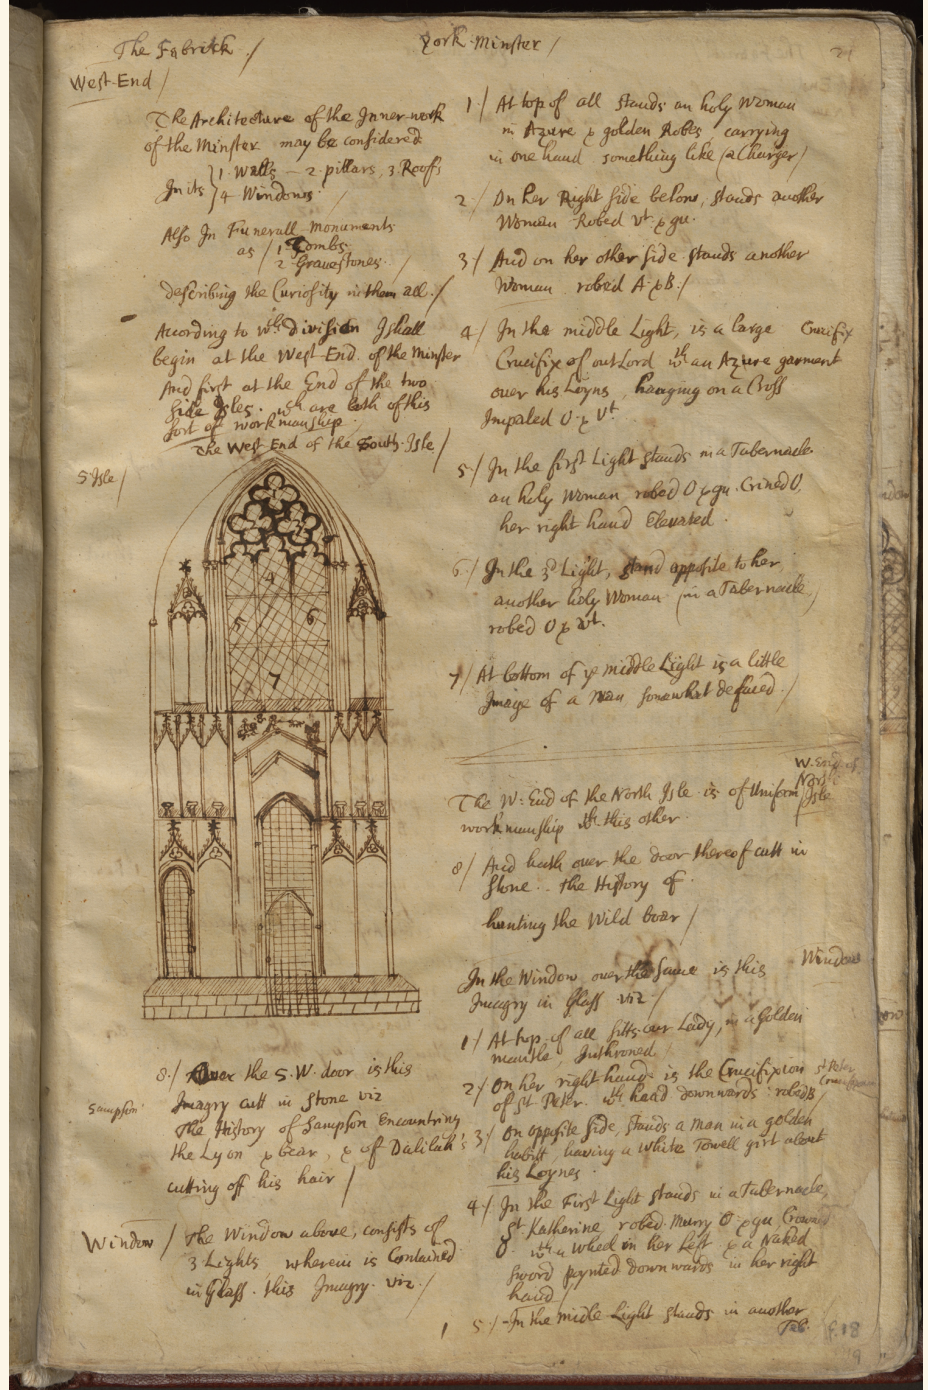 The Fabrick /
York Minster /
21
West-End /
The Architecture of the Inner-work
of the Minster may be considered
In its { 1 Walls — 2 pillars, 3 Roofs
4 Windows /
Also In Funerall Monuments
as / 1 Tombs
2 Gravestones /
describing the Curiosity in them all /
According to wch division I shall
begin at the West End of the Minster
And first at the End of the two
side Isles. wch are both of this
sort of workmanship.
The West End of the South-Isle /
S Isle /
4
5 6
7
8
8 / Over the S. W. door is this
Imagry cutt in Stone viz
Sampson
The History of Sampson Encountring
the Lyon & bear, & of Dalilah's
cutting off his hair /
Window /
The Window above, consists of
3 Lights wherein is Contained
in Glass this Imagry. viz. /
1 / At top of all stands an holy Woman
in Azure & golden Robes, carrying
in one hand something like (a Charger)
2 / On her Right side below, stands another
Woman Robed Vt & gu.
3 / And on her other side stands another
Woman robed A & B /
4 / In the middle Light, is a large
Crucifix
Crucifix of our Lord wth an Azure garment
over his Loyns, hanging on a Cross
Impaled O & Vt
5 / In the first Light stands in a Tabernacle
an holy Woman robed O & gu. Crined O,
her right hand Elevated.
6 / In the 3d Light, stand opposite to her
another holy Woman (in a Tabernacle)
robed O & vt.
7 / At bottom of ye middle Light is a little
Image of a Man somewhat defaced /
W. End of
North
Isle
The W. End of the North Isle is of Uniform
workmanship wth this other.
8 / And hath over the door thereof cutt in
Stone .. the History of
hunting the Wild boar /
Window
In the Window over the same is this
Imagry in Glass viz /
1 / At top of all sitts our Lady, in a Golden
mantle, Inthroned
2 / On her right hand is the Crucifixion
St Peter
of St Peter. wth head downwards robed B /
3 / On opposite side, stands a man in a golden
habitt, having a White Towell girt about
his Loynes.
4 / In the First Light stands in a Tabernacle,
St Katherine robed Murry O & gu Crownd
O. wth a Wheel in her Left & a Naked
sword poynted downwards in her right
hand /
5 / In the midle Light stands in another
Tab.
f. 18
19